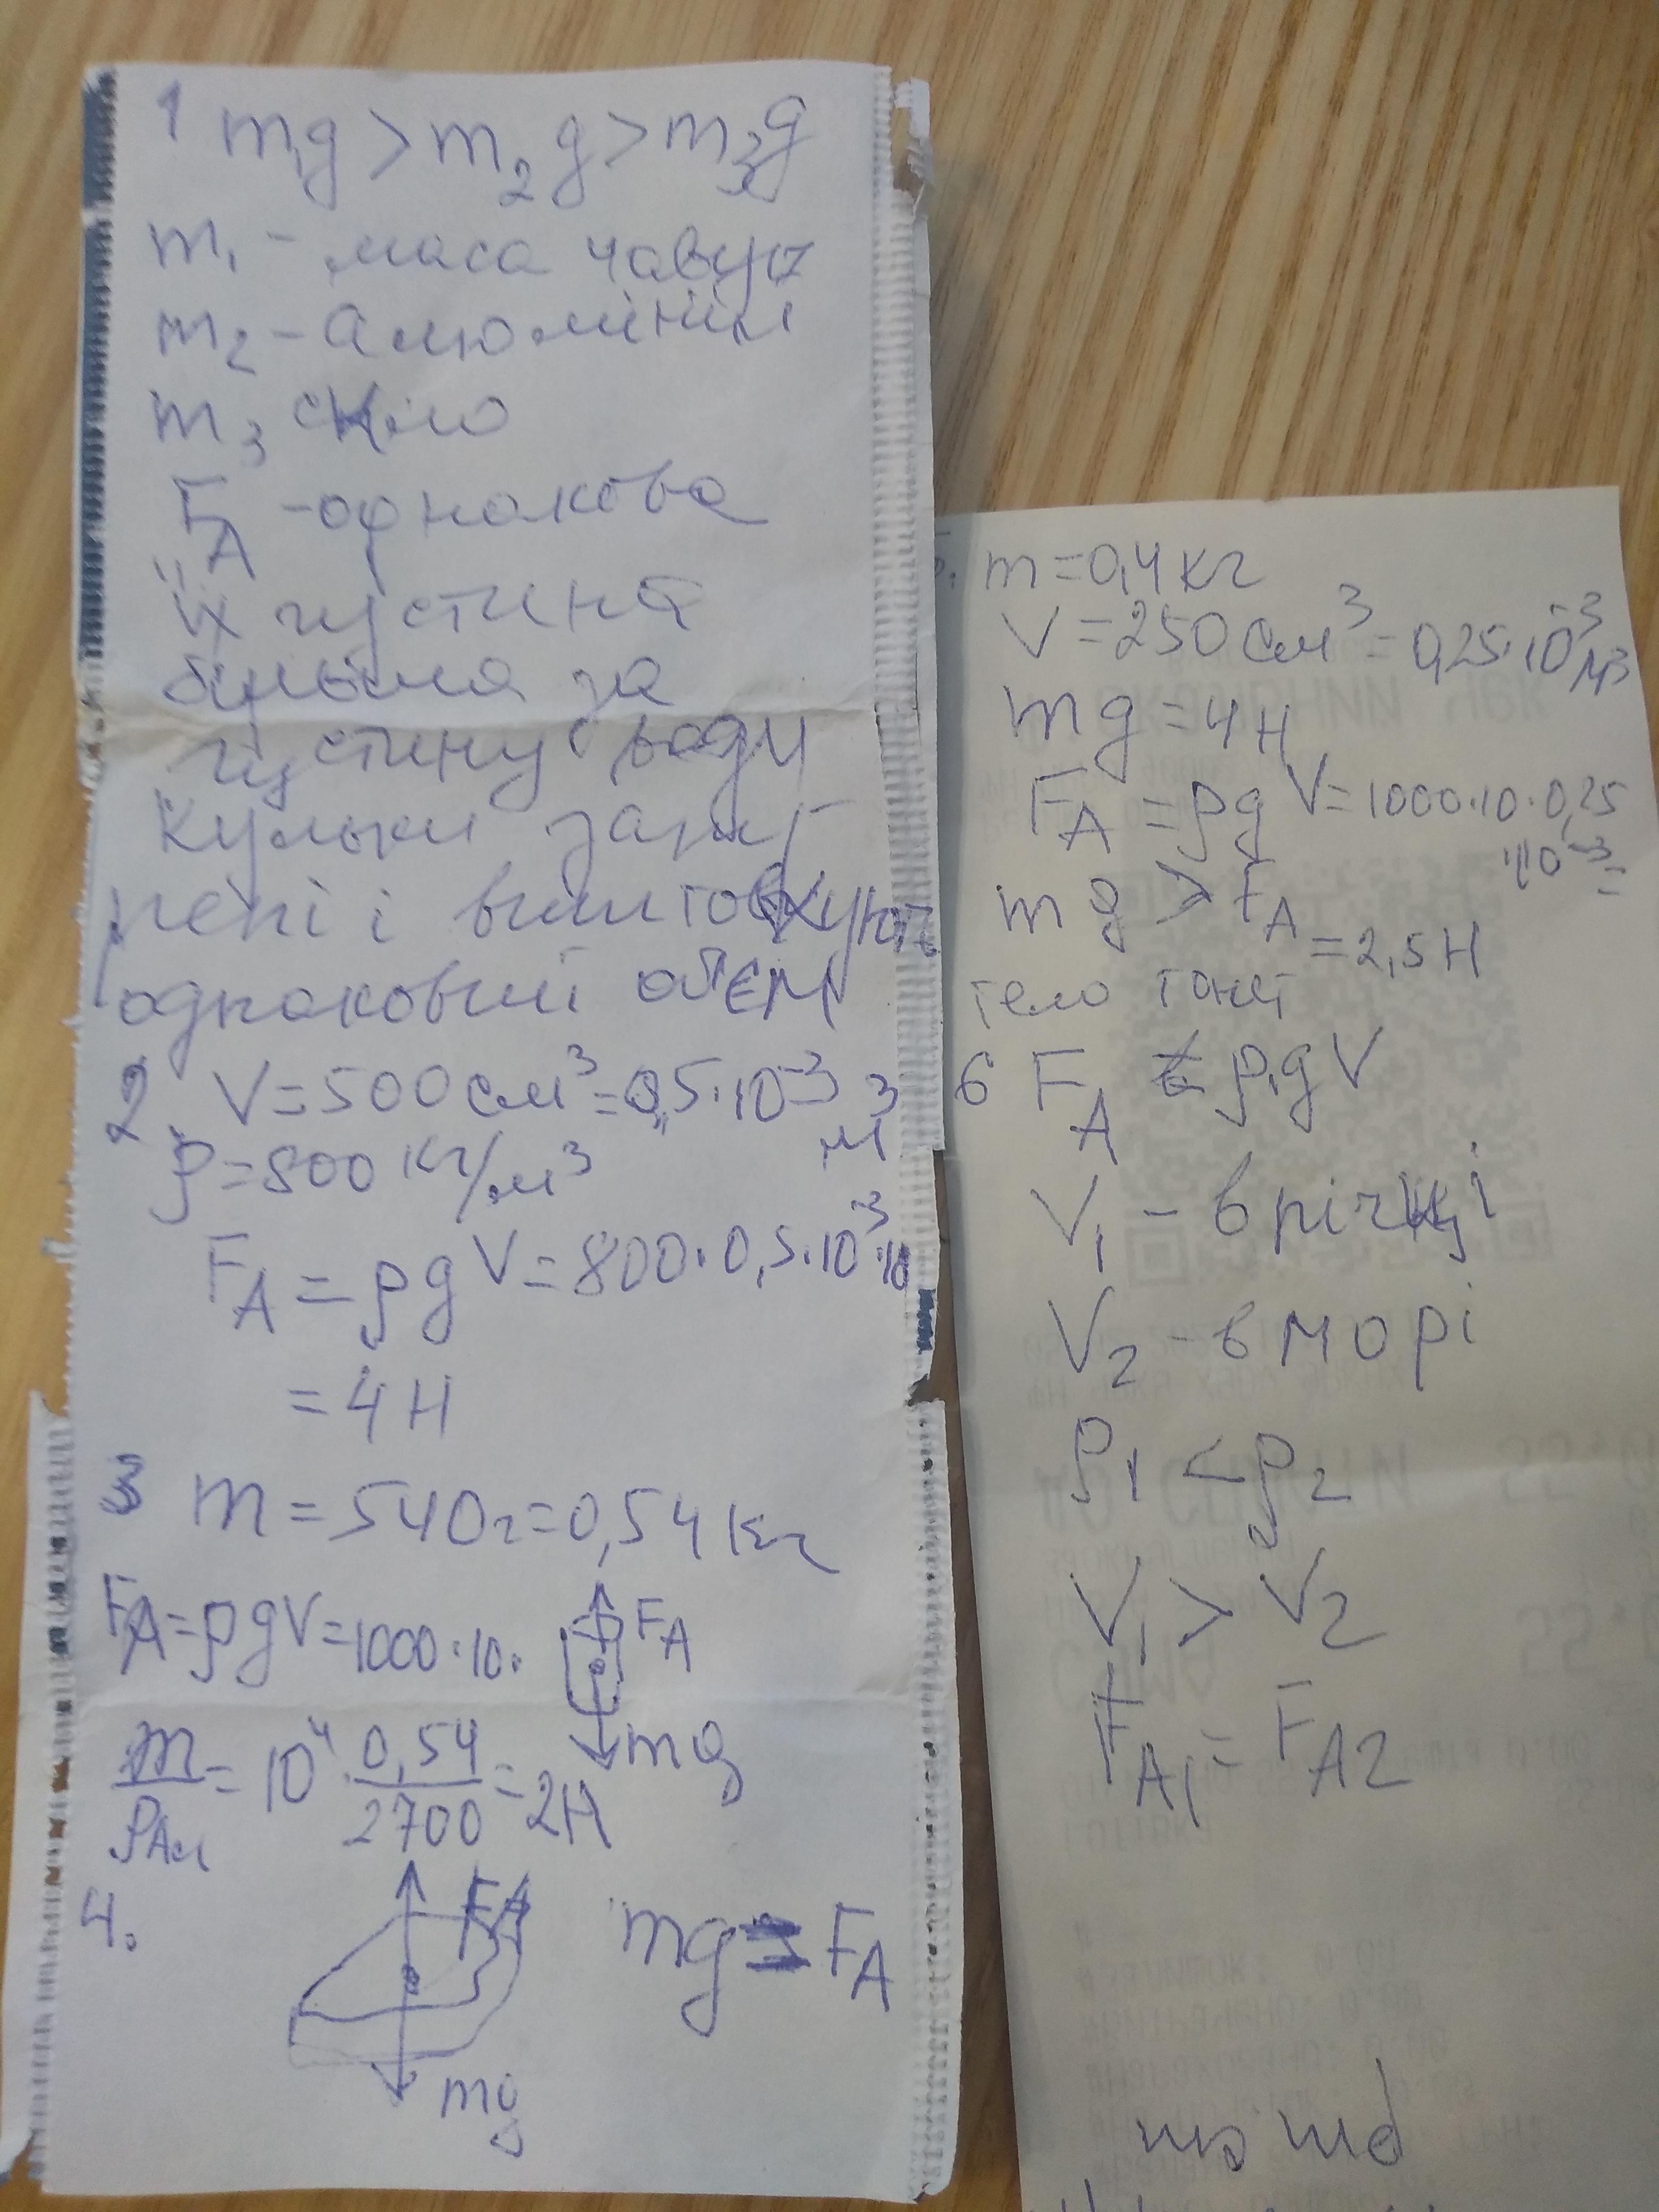 1 m₁g > m₂g > m₃g
m₁ - маса чавун
m₂ - алюміній
m₃ скло
F_A - однакова
їх густина
більша за
густину води
кульки зану-
рені і виштовхують
однаковий обєм
2. V = 500 см³ = 0,5·10⁻³ м³
ρ = 800 кг/м³
F_A = ρgV = 800·0,5·10⁻³·10
= 4 Н
3 m = 540г = 0,54 кг
F_A = ρgV = 1000·10·
F_A
mg
m/ρ_Ал = 10⁴·0,54/2700 = 2Н
4.
F_A
mg = F_A
mg
5. m = 0,4 кг
V = 250 см³ = 0,25·10⁻³ м³
mg = 4 Н
F_A = ρgV = 1000·10·0,25
·10⁻³ =
mg > F_A
= 2,5 Н
тело тонет
6 F_A = ρ₁gV
V₁ - в річці
V₂ - в морі
ρ₁ < ρ₂
V₁ > V₂
F_A1 = F_A2